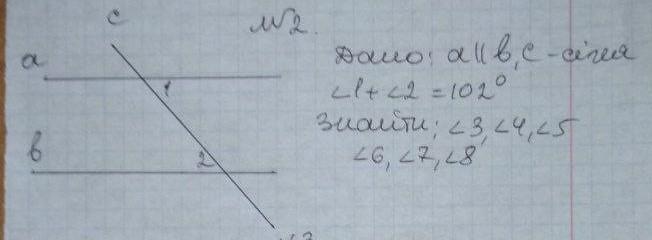 c
№2.
a
Дано: a∥b, c - січна
1
∠1+∠2 = 102°
Знайти: ∠3, ∠4, ∠5
b
2
∠6, ∠7, ∠8